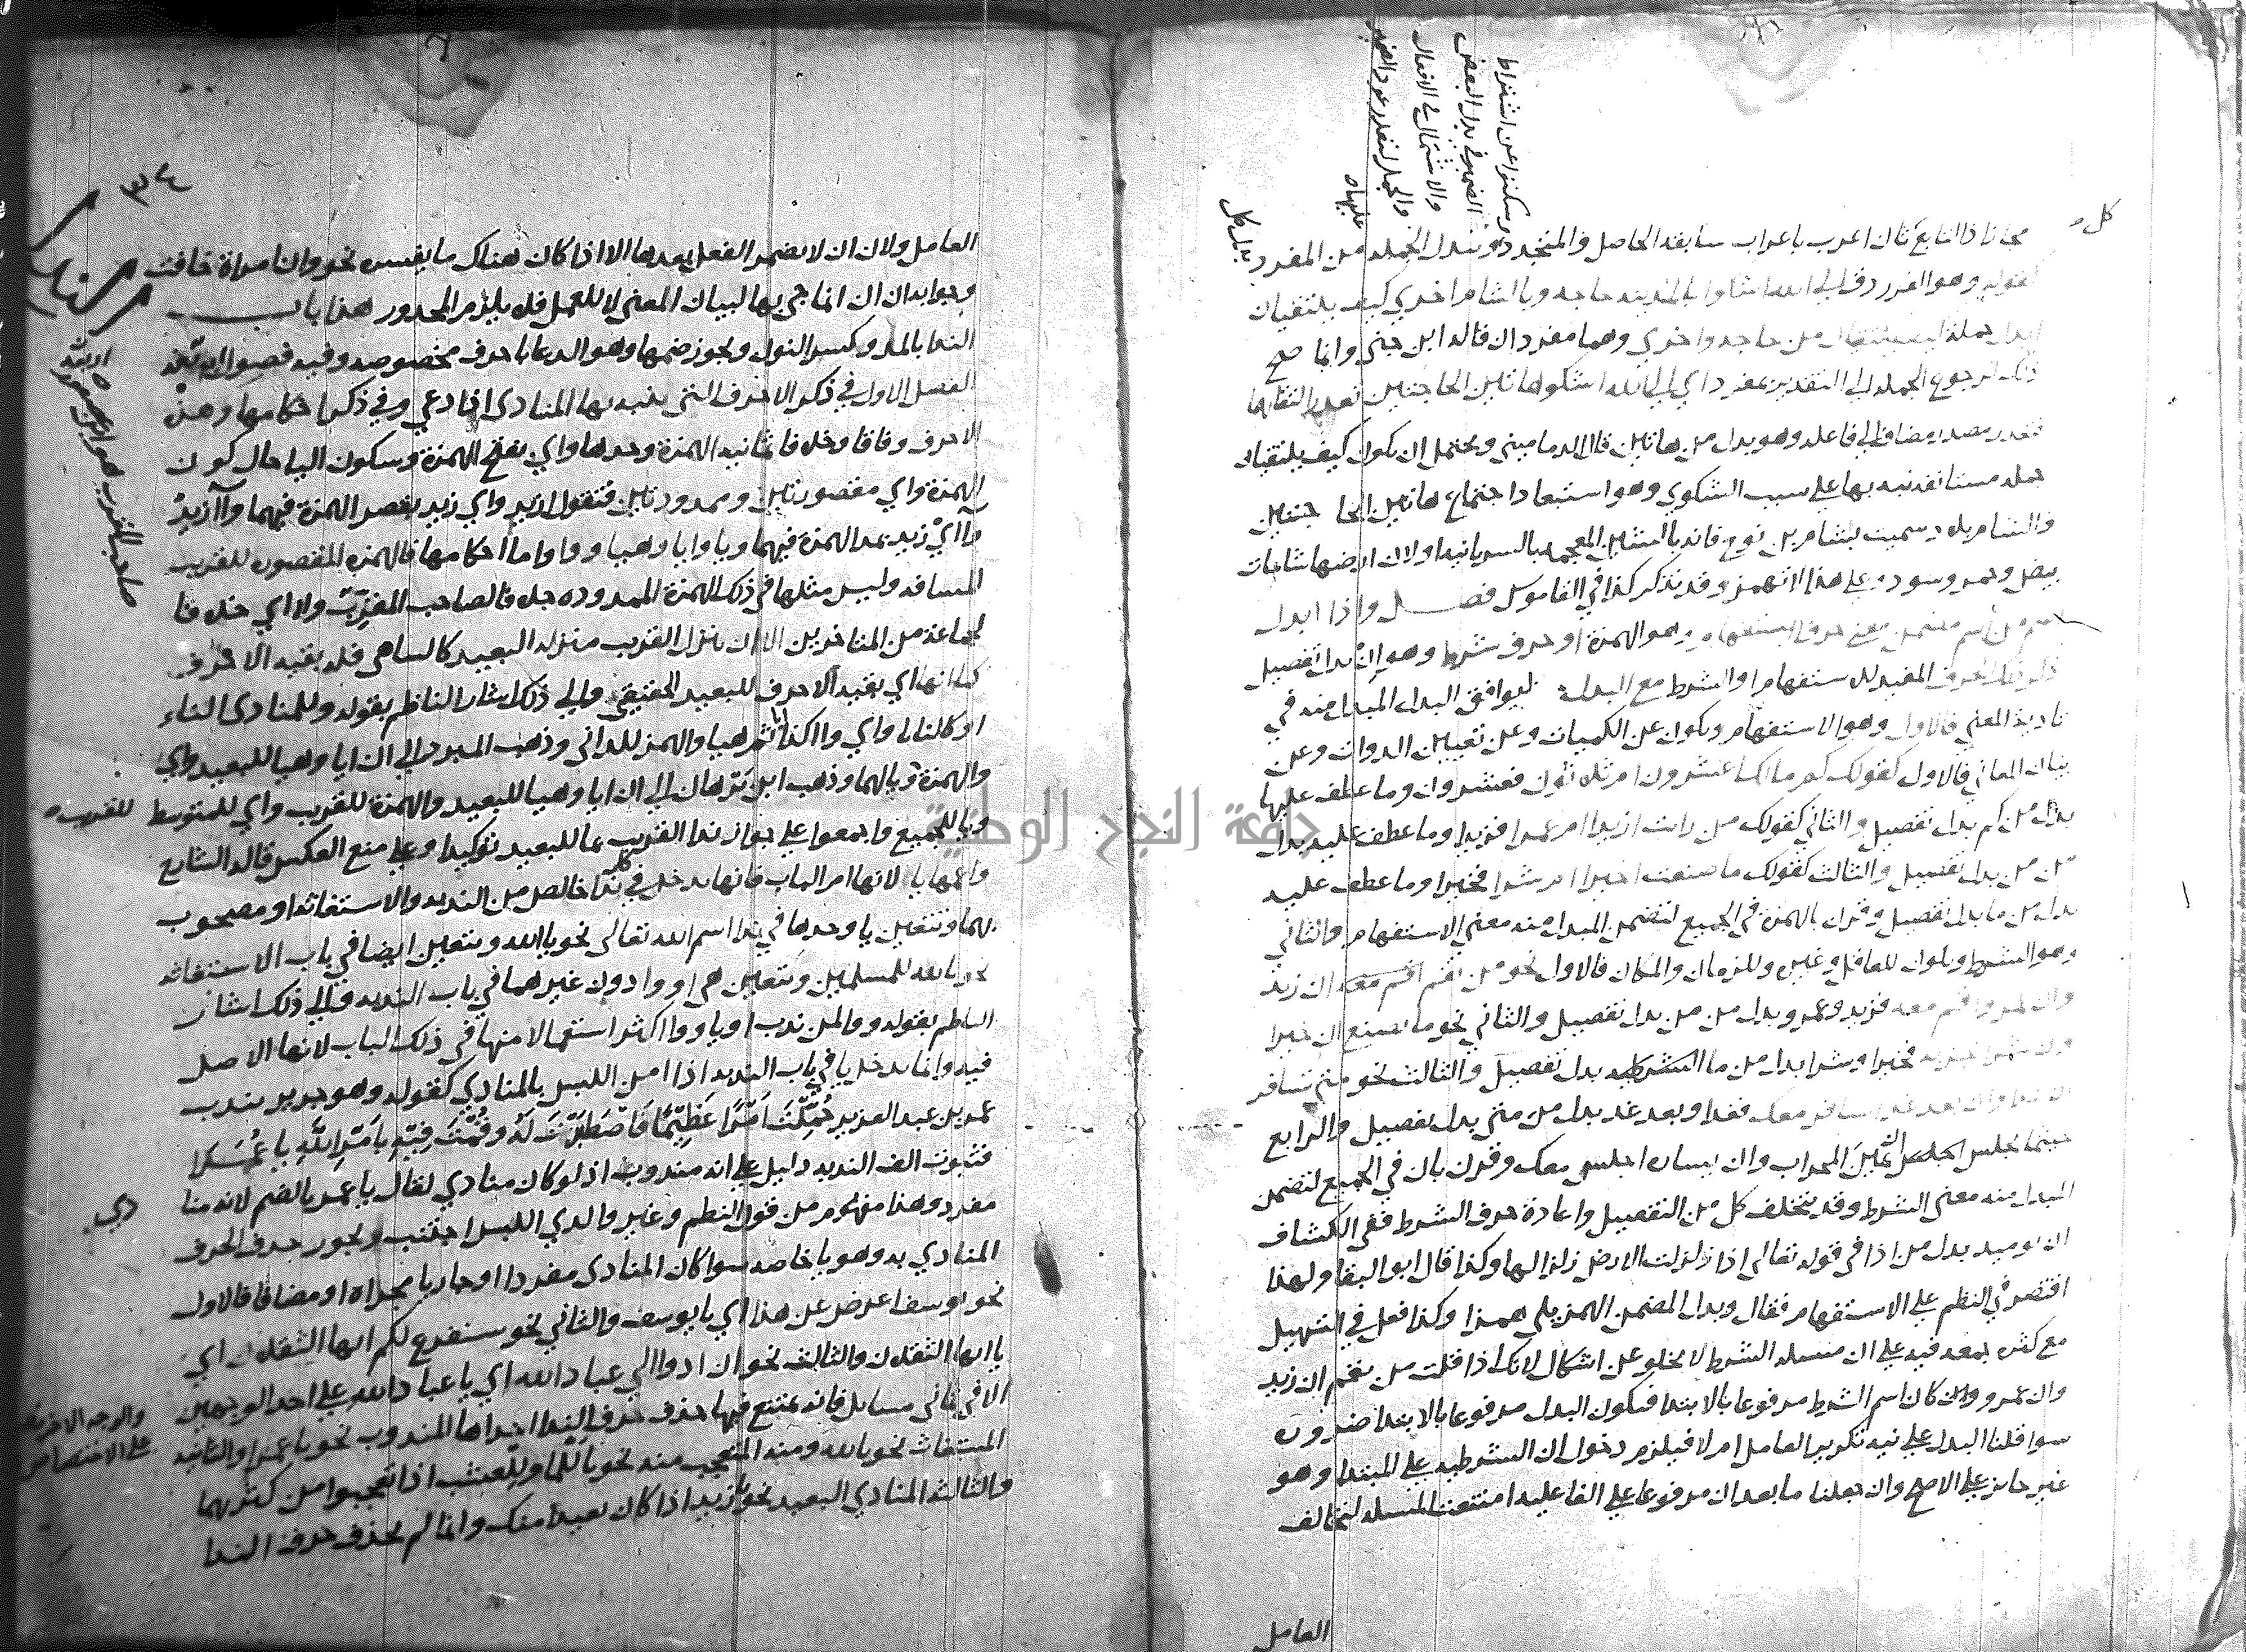 وسكتوا عن اشتراط
الضمير في بدل البعض
والاشتمال في الافعال
والجمل لتعذر عود الضمير
عليها ه
كل
بدل كل
مجازا ذالتابع ثان اعرب باعراب سابقه الحاصل والمتجدد وتبدل الجملة من المفرد
كقوله وهو الفرزدق الى الله اشكوا بالمدينة حاجة وبالشام اخري كيف يلتقيان
ابدل جملة كيف يلتقيان من حاجة واخري وهما مفردان قاله ابن جني وانما صح
ذلك لرجوع الجملة الي التقدير بمفرد اي الي الله اشكوا هاتين الحاجتين تعذر التقايهما
فتعذر مصدر مضاف الي فاعله وهو بدل من هاتين قال الدماميني ويحتمل ان يكون كيف يلتقيان
جملة مستانفة نبه بها علي سبب الشكوي وهو استبعاد اجتماع هاتين الحاجتين
والشام بلاد سميت بشام بن نوح فانه بالشين المعجمة بالسريانية او لان ارضها شامات
بيض وحمر وسود وعلي هذا لا تهمز وقد تذكر كذا في القاموس فصل واذا ابدل
اسم من اسم مضمن معني حرف استفهام وهو الهمزة او حرف شرط وهو ان بدل تفصيل
ذكر ذلك الحرف المفيد للاستفهام او الشرط مع البدل ليوافق البدل المبدل منه في
تادية المعني فالاول وهو الاستفهام ويكون عن الكميات وعن تعيين الذوات وعن
بيان المعاني فالاول كقولك كم مالك اعشرون ام ثلاثون فعشرون وما عطف عليها
بدل من كم بدل تفصيل والثاني كقولك من رايت ازيدا ام عمرا فزيدا وما عطف عليه بدل
من من بدل تفصيل والثالث كقولك ما صنعت اخيرا ام شرا فخيرا وما عطف عليه
بدل من ما بدل تفصيل وقرن بالهمزة في الجميع لتضمن المبدل منه معني الاستفهام والثاني
وهو الشرط ويكون للعاقل وغيره وللزمان والمكان فالاول نحو من يقم اقم معه ان زيد
وان عمرو اقم معه فزيد وعمرو بدل من من بدل تفصيل والثاني نحو ما تصنع ان خيرا
وان شرا تجز به فخيرا وشرا بدل من ما الشرطية بدل تفصيل والثالث نحو متى تسافر
ان غدا وان بعد غد اسافر معك فغدا وبعد غد بدل من متى بدل تفصيل والرابع
حيثما تجلس اجلس ان يمين المحراب وان يساره اجلس معك وقرن بان في الجميع لتضمن
المبدل منه معني الشرط وقد يتخلف كل من التفصيل واعادة حرف الشرط ففي الكشاف
ان يوميذ بدل من اذا في قوله تعالى اذا زلزلت الارض زلزالها وكذا قال ابو البقا ولهذا
اقتصر في النظم علي الاستفهام فقال وبدل المضمن الهمز يلي همزا وكذا فعل في التسهيل
مع كثرة جمعه فيه علي ان مسيلة الشرط لا يخلو عن اشكال لانك اذا قلت من يقم ان زيد
وان عمرو وان كان اسم الشرط مرفوعا بالابتدا فيكون البدل مرفوعا بالابتدا ضرورة
سوا قلنا البدل علي نية تكرير العامل ام لا فيلزم دخول ان الشرطية علي المبتدا وهو
غير جايز علي الاصح وان جعلنا ما بعد ان مرفوعا علي الفاعلية امتنعت المسيلة لتخالف
العامل
٣٤
العامل ولان ان لا يضمر الفعل بعدها الا اذا كان هناك ما يفسره نحو وان امراة خافت
وجوابه ان ان انما جي بها لبيان المعني لا للعمل فلا يلزم المحذور هذا باب
الندا بالمد وكسر النون ويجوز ضمها وهو الدعا باحرف مخصوصة وفيه فصول اربعة
الفصل الاول في ذكر الاحرف التي ينبه بها المنادى اذا دعي وفي ذكر احكامها وهذه
الاحرف وفاقا وخلافا ثمانية الهمزة وحدها واي بفتح الهمزة وسكون اليا حال كون
الهمزة واي مقصورتين وممدودتين فتقول ازيد واي زيد بقصر الهمزة فيهما وآ ازيد
وآاي زيد بمد الهمزة فيهما ويا وايا وهيا ووا واما احكامها فالهمزة المقصورة للقريب
المسافة وليس مثلها في ذلك الهمزة الممدودة جلافا لصاحب المقرب ولا اي خلافا
لجماعة من المتاخرين الا ان ينزل القريب منزلة البعيد كالساهي فله بقية الاحرف
كما انها اي بقية الاحرف للبعيد الحقيقي والي ذلك اشار الناظم بقوله وللمنادى الناء
او كالناء اي وا كذا ايا ثم هيا والهمز للداني وذهب المبرد الي ان ايا وهيا للبعيد واي
والهمزة ويا لهما وذهب ابن برهان الي ان ايا وهيا للبعيد والهمزة للقريب واي للمتوسط
للقريب
ويا للجميع واجمعوا علي جواز ندا القريب بما للبعيد توكيدا وعلي منع العكس قاله الشارح
واعمها يا لانها ام الباب فانها تدخل في كل ندا خالص من الندبة والاستغاثة او مصحوب
بهما وتتعين يا وحدها في ندا اسم الله تعالى نحو يا الله وتتعين ايضا في باب الاستغاثة
نحو يا لله للمسلمين وتتعين هي او وا دون غيرهما في باب الندبة والي ذلك اشار
الناظم بقوله ووا لمن ندب او يا ووا اكثر استعمالا منها في ذلك الباب لانها الاصل
فيه وانما تدخل يا في باب الندبة اذا امن اللبس بالمنادي كقوله وهو جرير يندب
عمر بن عبد العزيز حُمِّلْتَ اَمْرًا عَظِيْمًا فَاصْطَبَرْتَ لَهُ وَقُمْتَ فِيْهِ بِاَمْرِ اللّٰهِ يا عُمَرا
فثبوت الف الندبة دليل علي انه مندوب اذ لو كان منادي لقال يا عمر بالضم لانه منا
دي
مفرد وهذا مفهوم من قول النظم وغير وا لدي اللبس اجتنب ويجوز حذف الحرف
المنادي به وهو يا خاصة سوا كان المنادى مفردا او جاريا مجراه او مضافا فالاول
نحو يوسف اعرض عن هذا اي يا يوسف والثاني نحو سنفرغ لكم ايها الثقلان اي
يا ايها الثقلان والثالث نحو ان ادوا الي عباد الله اي يا عباد الله علي احد الوجهين
والوجه الاخر
علي الاختصاص
الا في ثماني مسايل فانه يمتنع فيها حذف حرف الندا احداها المندوب نحو يا عمرا والثانية
المستغاث نحو يا لله ومنه المتعجب منه نحو يا للما ويا للعشب اذا تعجبوا من كثرتهما
والثالثة المنادي البعيد نحو يا زيد اذا كان بعيدا منك وانما لم يحذف حرف الندا
جامعة النجاح الوطنية